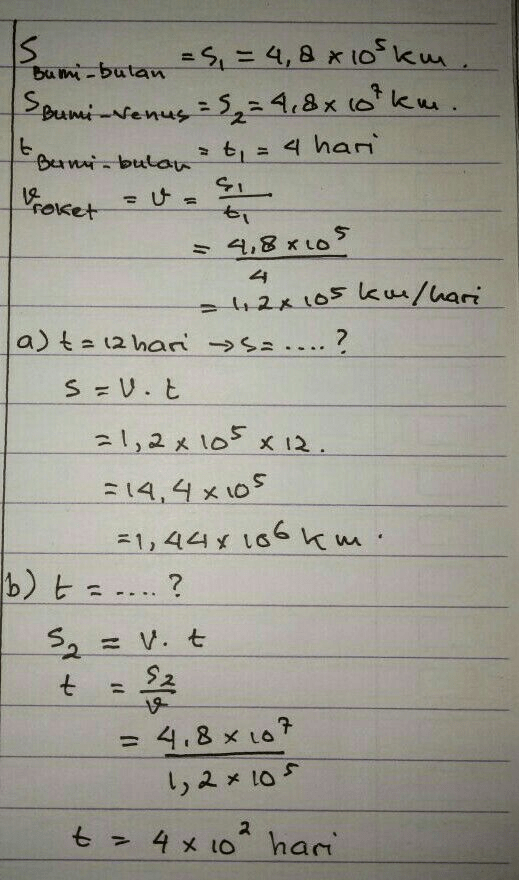 S Bumi-bulan = S₁ = 4,8 × 10⁵ km.
S Bumi-venus = S₂ = 4,8 × 10⁷ km.
t Bumi-bulan = t₁ = 4 hari
v roket = v = S₁/t₁
= 4,8 × 10⁵ / 4
= 1,2 × 10⁵ km/hari
a) t = 12 hari → s = ....?
s = v . t
= 1,2 × 10⁵ × 12.
= 14,4 × 10⁵
= 1,44 × 10⁶ km.
b) t = ....?
S₂ = v . t
t = S₂/v
= 4,8 × 10⁷ / 1,2 × 10⁵
t = 4 × 10² hari